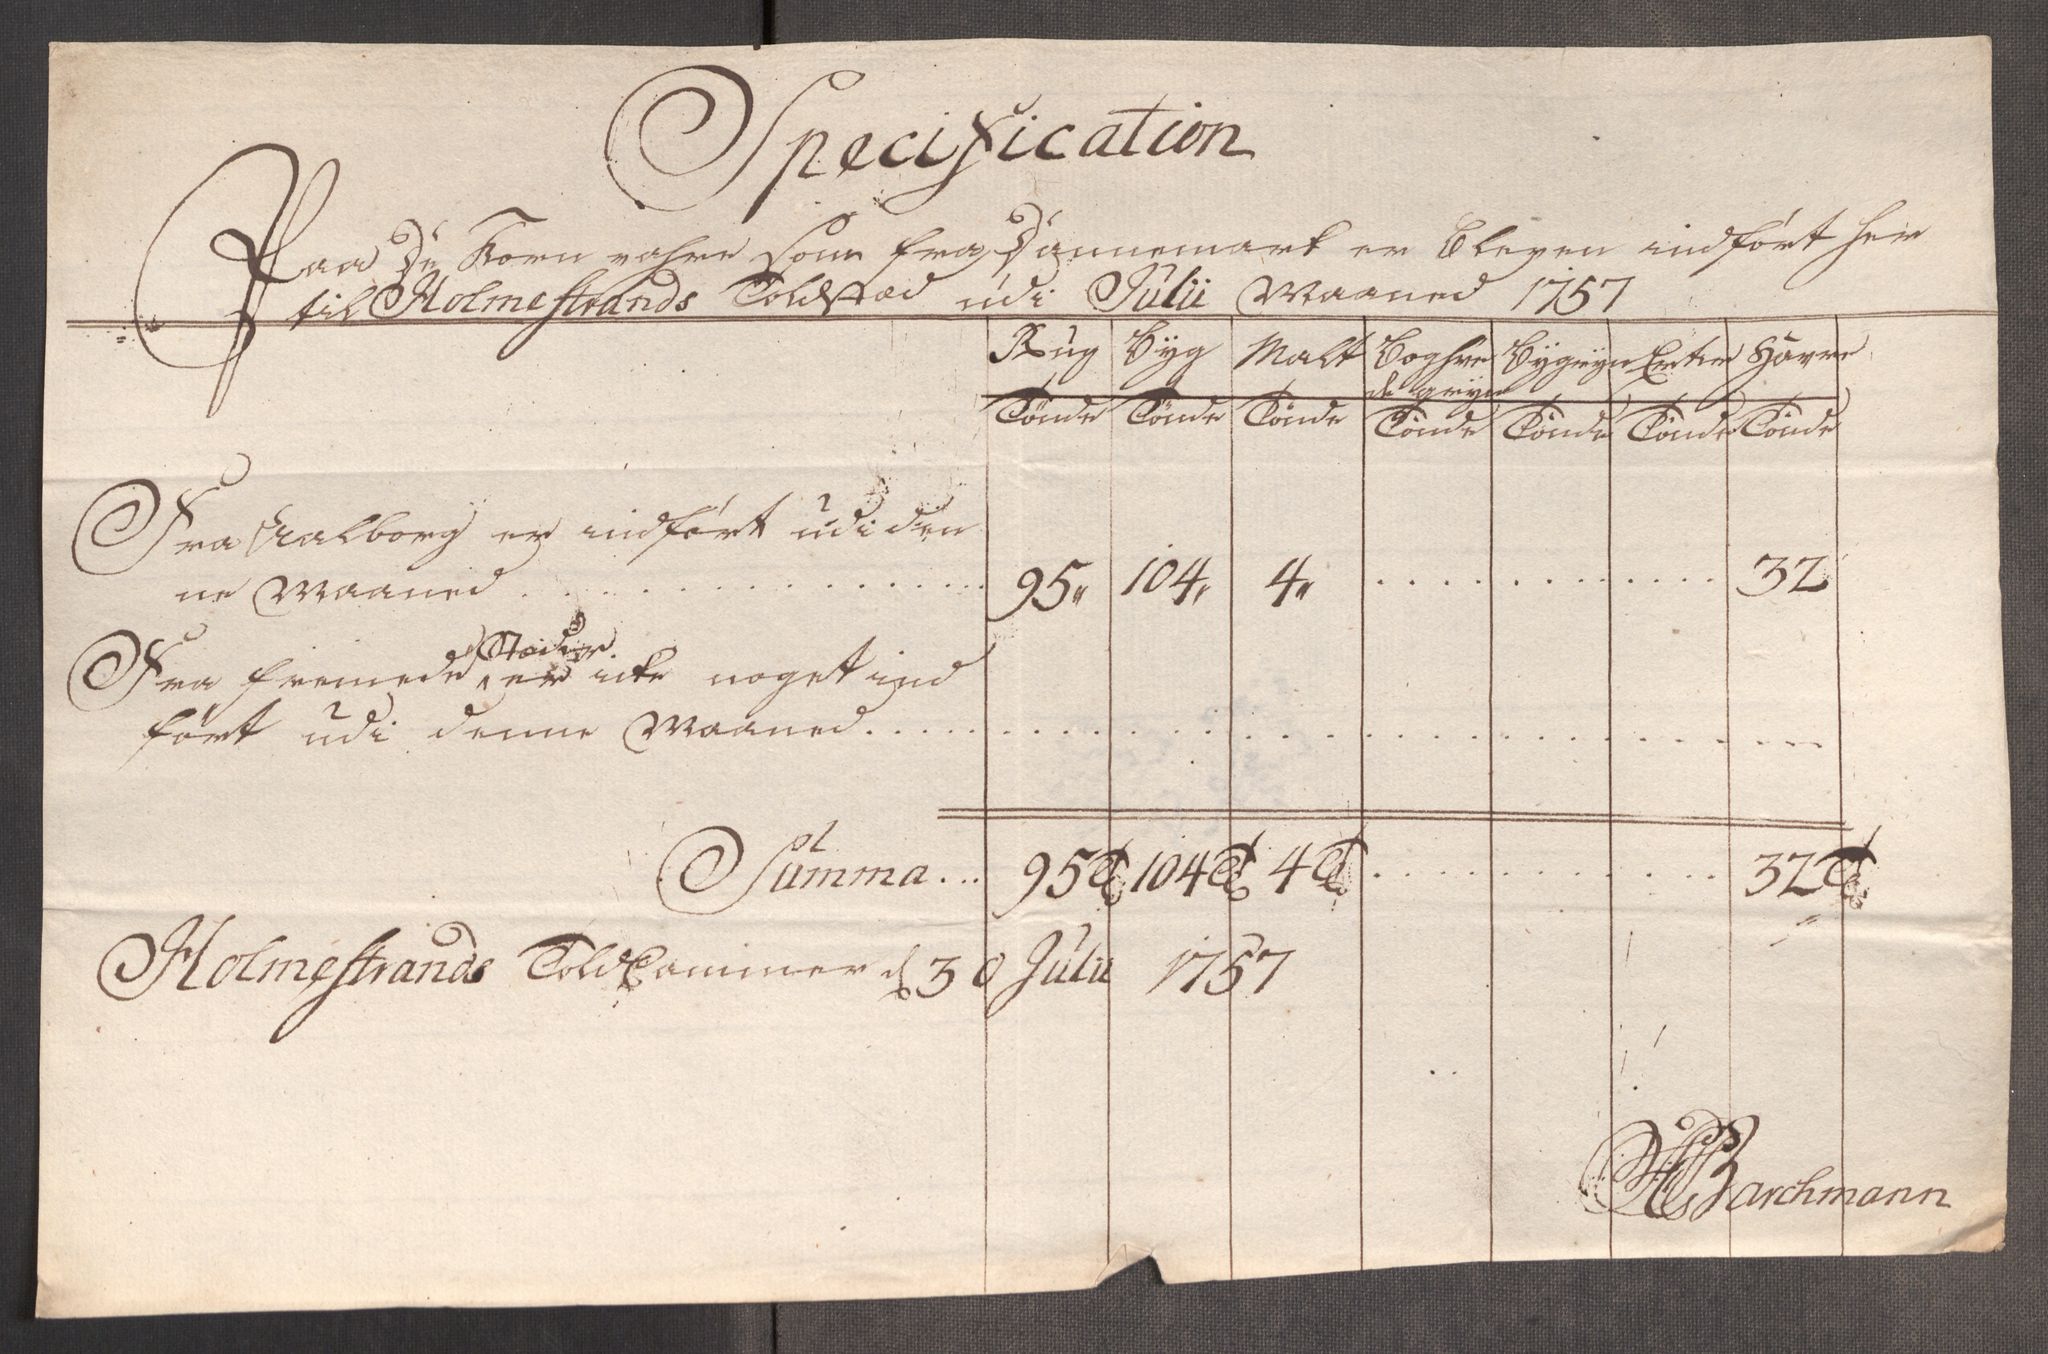 Specification
Paa De Korn vahre som fra Dannemark er bleven indført her
til Holmestrands Toldstæd udi Julii Maaned 1757
Rug Byg Malt Boghve Byggryn Erter Havre
de gryn
Tønde Tønde Tønde Tønde Tønde Tønde Tønde
Fra Aalborg er indført udi den
ne Maaned 95" 104" 4" 32
Stæder
Fra fremede er icke noget ind
ført udi denne Maaned
Summa 95 T 104 T 4 T 32 T
Holmestrands Told Cammer d 30 Julii 1757
Barchmann